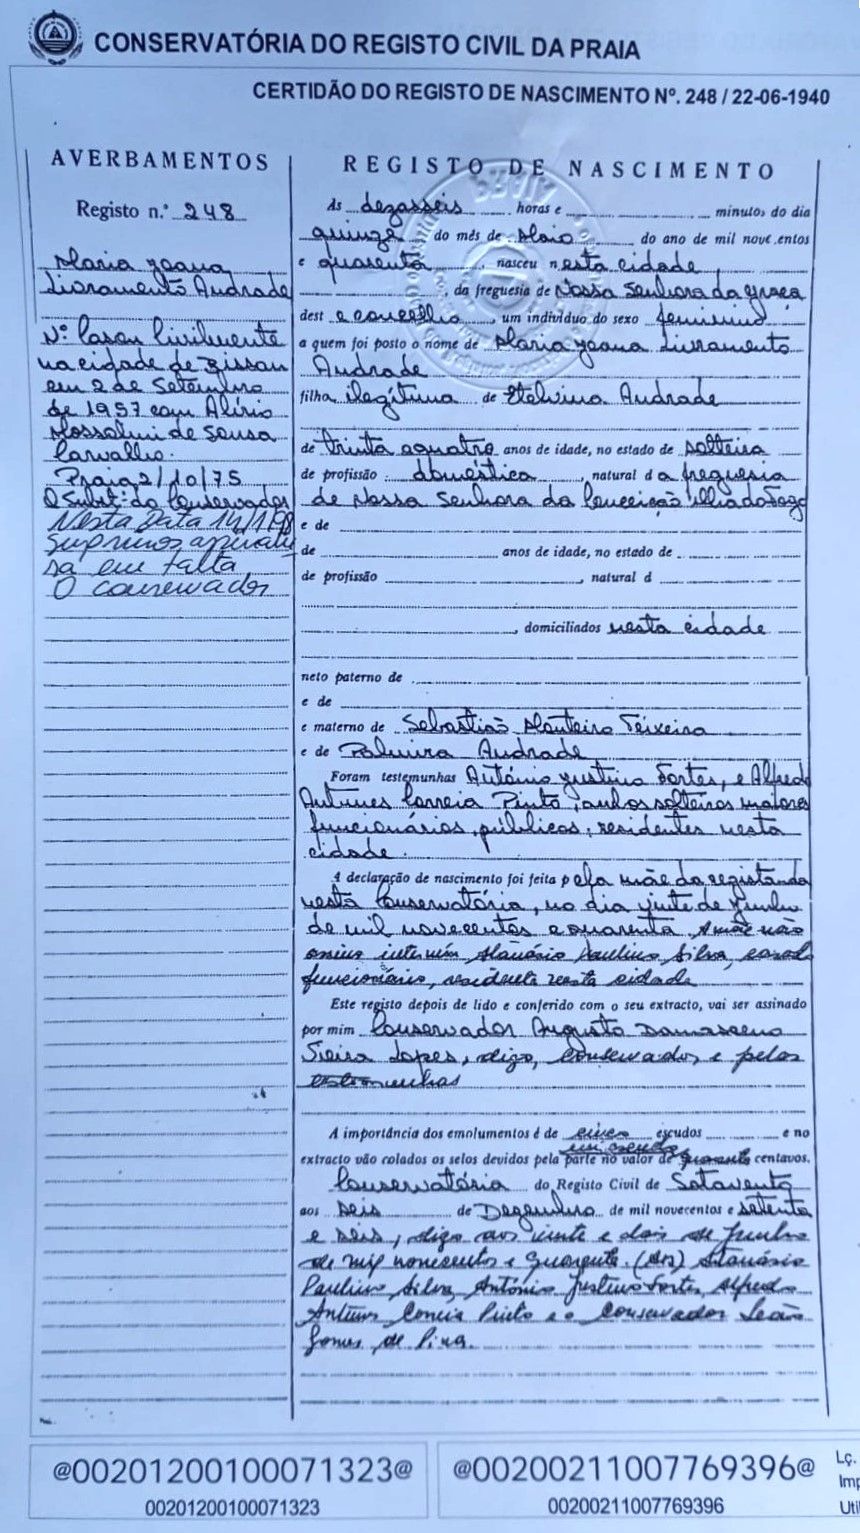 CONSERVATÓRIA DO REGISTO CIVIL DA PRAIA
CERTIDÃO DO REGISTO DE NASCIMENTO Nº. 248 / 22-06-1940
AVERBAMENTOS
Registo n.º 248
Maria Joana
Livramento Andrade
Nº 1 Casou Civilmente
na cidade de Bissau
em 2 de Setembro
de 1957 com Alírio
Mossolini de Sousa
Carvalho.
Praia 2/10/75
O Subst: do Conservador
Nesta Data 14/1/98
Suprimos
sa em falta
O conservador
REGISTO DE NASCIMENTO
Às dezasseis horas e minutos do dia
quinze do mês de Maio do ano de mil novecentos
e quarenta, nasceu nesta cidade
, da freguesia de Nossa Senhora da Graça
deste concelho, um indivíduo do sexo feminino
a quem foi posto o nome de Maria Joana Livramento
Andrade
filha ilegítima de Etelvina Andrade
de trinta e quatro anos de idade, no estado de solteira
de profissão doméstica, natural da freguesia
de Nossa Senhora da Conceição ilha do Fogo
e de
de anos de idade, no estado de
de profissão , natural d
, domiciliados nesta cidade
neto paterno de
e de
e materno de Sebastião Monteiro Teixeira
e de Palmira Andrade
Foram testemunhas António Justino Fortes, e Alfredo
Antunes Correia Pinto, ambos solteiros maiores
funcionários, públicos, residentes nesta
cidade.
A declaração de nascimento foi feita pela mãe da registanda
nesta Conservatória, no dia vinte de Junho
de mil novecentos e quarenta. A mãe não
assina intervém Paulino Silva, casado
funcionário, residente nesta cidade
Este registo depois de lido e conferido com o seu extracto, vai ser assinado
por mim Conservador Augusto Damasceno
Vieira Lopes, digo, conservador e pelas
testemunhas
A importância dos emolumentos é de cinco escudos e no
um escudo
extracto vão colados os selos devidos pela parte no valor de quarenta centavos.
Conservatória do Registo Civil de Sotavento
aos seis de Dezembro de mil novecentos e setenta
e seis, digo aos vinte e dois de Junho
de mil novecentos e quarenta. (As)
Paulino Silva, António Justino Fortes, Alfredo
Antunes Correia Pinto e o Conservador Leão
Gomes de Pina.
@00201200100071323@
00201200100071323
@002002110077693​96@
00200211007769396
Lç.
Imp
Uti